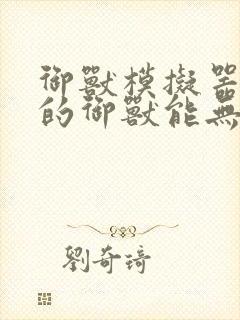 御獸模擬器
的御獸能無
劉奇琦